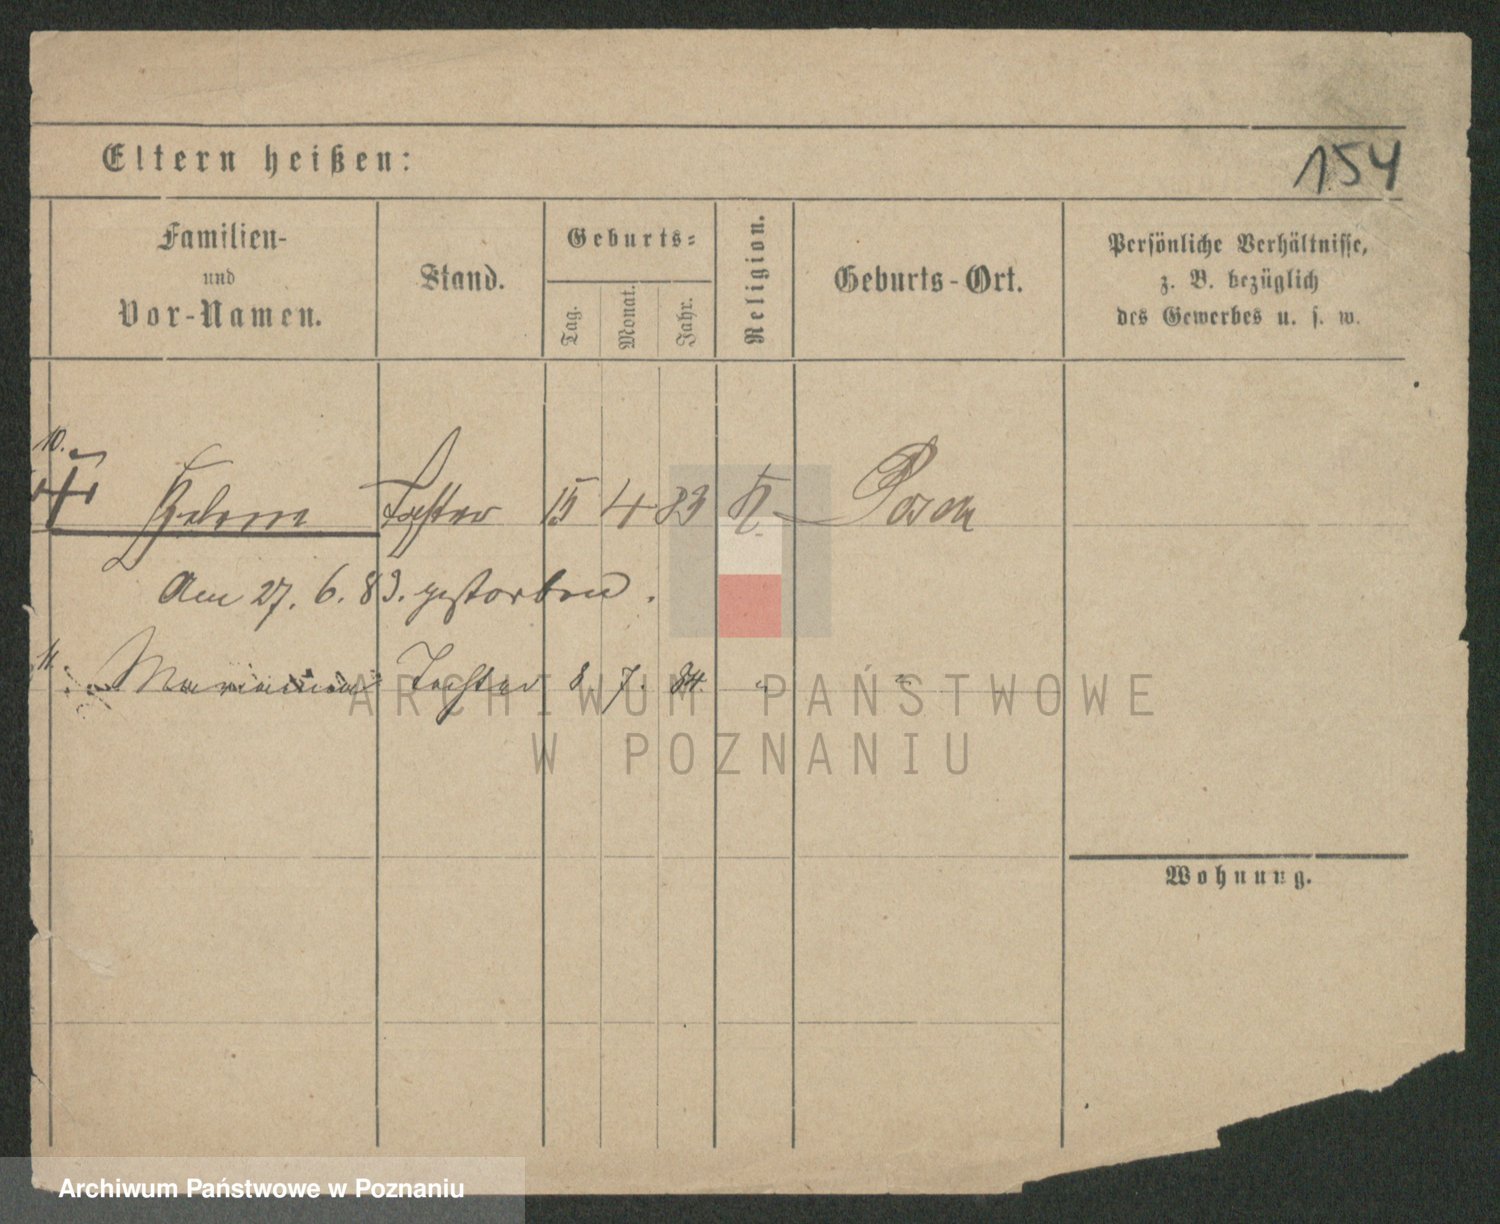 Eltern heißen:
154
Familien-
und
Vor-Namen.
Stand.
Geburts-
Tag.
Monat.
Jahr.
Religion.
Geburts-Ort.
Persönliche Verhältnisse,
z. B. bezüglich
des Gewerbes u. s. w.
10.
Helene Tochter 15 4 83 K. Posen
Am 27. 6. 83. gestorben.
11. Marianna Tochter 8. 7. 84. " "
ARCHIWUM PAŃSTWOWE
W POZNANIU
Wohnung.
Archiwum Państwowe w Poznaniu